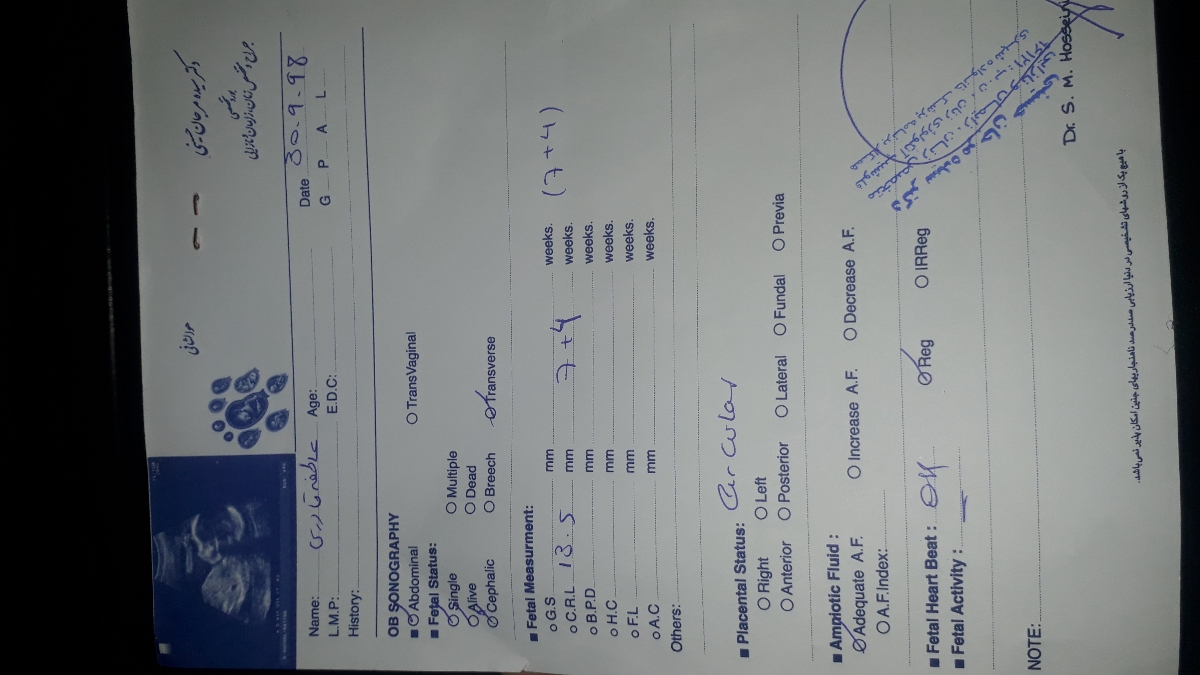 Date 30-9-98
G P A L
Name: عاطفه قادری Age:
L.M.P: E.D.C:
History:
OB SONOGRAPHY
Abdominal TransVaginal
Fetal Status:
Single Multiple
Alive Dead
Cephalic Breech Transverse
Fetal Measurment:
G.S mm weeks. (7+4)
C.R.L 13.5 mm 7+4 weeks.
B.P.D mm weeks.
H.C mm weeks.
F.L mm weeks.
A.C mm weeks.
Others:
Placental Status: Circular
Right Left
Anterior Posterior Lateral Fundal Previa
Amniotic Fluid :
Adequate A.F. Increase A.F. Decrease A.F.
A.F.Index:
Fetal Heart Beat : Reg IRReg
Fetal Activity : —
NOTE:
Dr. S. M. Hosseini
با هیچ یک از روشهای تشخیصی در دنیا ارزیابی صددرصد ناهنجاریهای جنین امکان پذیر نمی‌باشد.